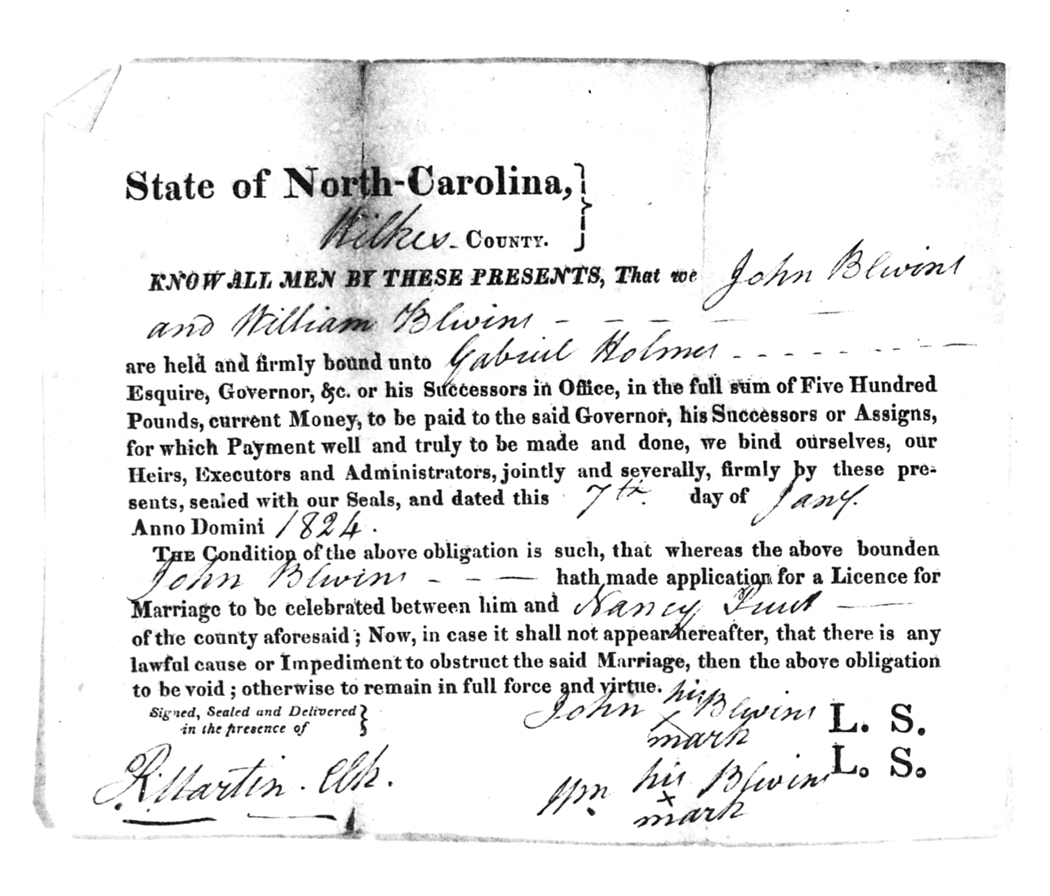 State of North-Carolina,
Wilkes COUNTY.
KNOW ALL MEN BY THESE PRESENTS, That we John Blevins
and William Blevins
are held and firmly bound unto Gabriel Holmes
Esquire, Governor, &c. or his Successors in Office, in the full sum of Five Hundred
Pounds, current Money, to be paid to the said Governor, his Successors or Assigns,
for which Payment well and truly to be made and done, we bind ourselves, our
Heirs, Executors and Administrators, jointly and severally, firmly by these pre-
sents, sealed with our Seals, and dated this 7th. day of Jany.
Anno Domini 1824.
THE Condition of the above obligation is such, that whereas the above bounden
John Blevins hath made application for a Licence for
Marriage to be celebrated between him and Nancy
of the county aforesaid; Now, in case it shall not appear hereafter, that there is any
lawful cause or Impediment to obstruct the said Marriage, then the above obligation
to be void; otherwise to remain in full force and virtue.
Signed, Sealed and Delivered
in the presence of
John his x mark Blevins L. S.
R. Martin. Clk.
Wm his x mark Blevins L. S.